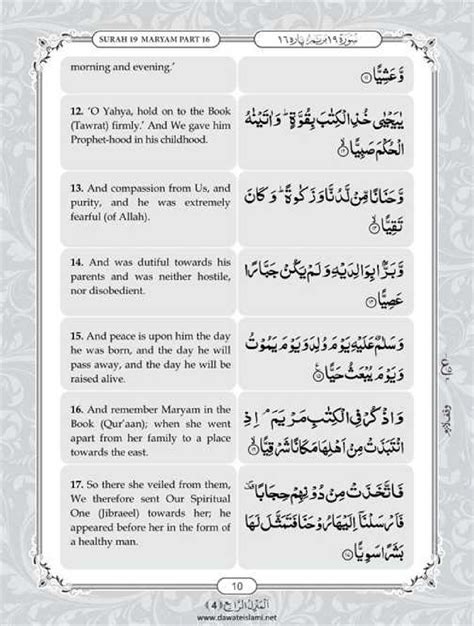 SURAH 19 MARYAM PART 16
سُوْرَة ١٩ مَرْيَم / پارہ ١٦
morning and evening.’
وَّعَشِيًّا ۝١١
12. ‘O Yahya, hold on to the Book
(Tawrat) firmly.’ And We gave him
Prophet-hood in his childhood.
يٰيَحْيٰى خُذِ الْكِتٰبَ بِقُوَّةٍ ؕ وَاٰتَيْنٰهُ
الْحُكْمَ صَبِيًّا ۝١٢
13. And compassion from Us, and
purity, and he was extremely
fearful (of Allah).
وَّحَنَانًا مِّنْ لَّدُنَّا وَزَكٰوةً ؕ وَكَانَ
تَقِيًّا ۝١٣
14. And was dutiful towards his
parents and was neither hostile,
nor disobedient.
وَّبَرًّۢا بِوَالِدَيْهِ وَلَمْ يَكُنْ جَبَّارًا
عَصِيًّا ۝١٤
15. And peace is upon him the day
he was born, and the day he will
pass away, and the day he will be
raised alive.
وَسَلٰمٌ عَلَيْهِ يَوْمَ وُلِدَ وَيَوْمَ يَمُوْتُ
وَيَوْمَ يُبْعَثُ حَيًّا ۝١٥
16. And remember Maryam in the
Book (Qur’aan); when she went
apart from her family to a place
towards the east.
وَاذْكُرْ فِي الْكِتٰبِ مَرْيَمَ ۘ اِذِ
انْتَبَذَتْ مِنْ اَهْلِهَا مَكَانًا شَرْقِيًّا ۝١٦
17. So there she veiled from them,
We therefore sent Our Spiritual
One (Jibraeel) towards her; he
appeared before her in the form of
a healthy man.
فَاتَّخَذَتْ مِنْ دُوْنِهِمْ حِجَابًا ۪۟
فَاَرْسَلْنَاۤ اِلَيْهَا رُوْحَنَا فَتَمَثَّلَ لَهَا
بَشَرًا سَوِيًّا ۝١٧
10
اَلْمَنْزِلُ الرَّابِع ﴿4﴾
www.dawateislami.net